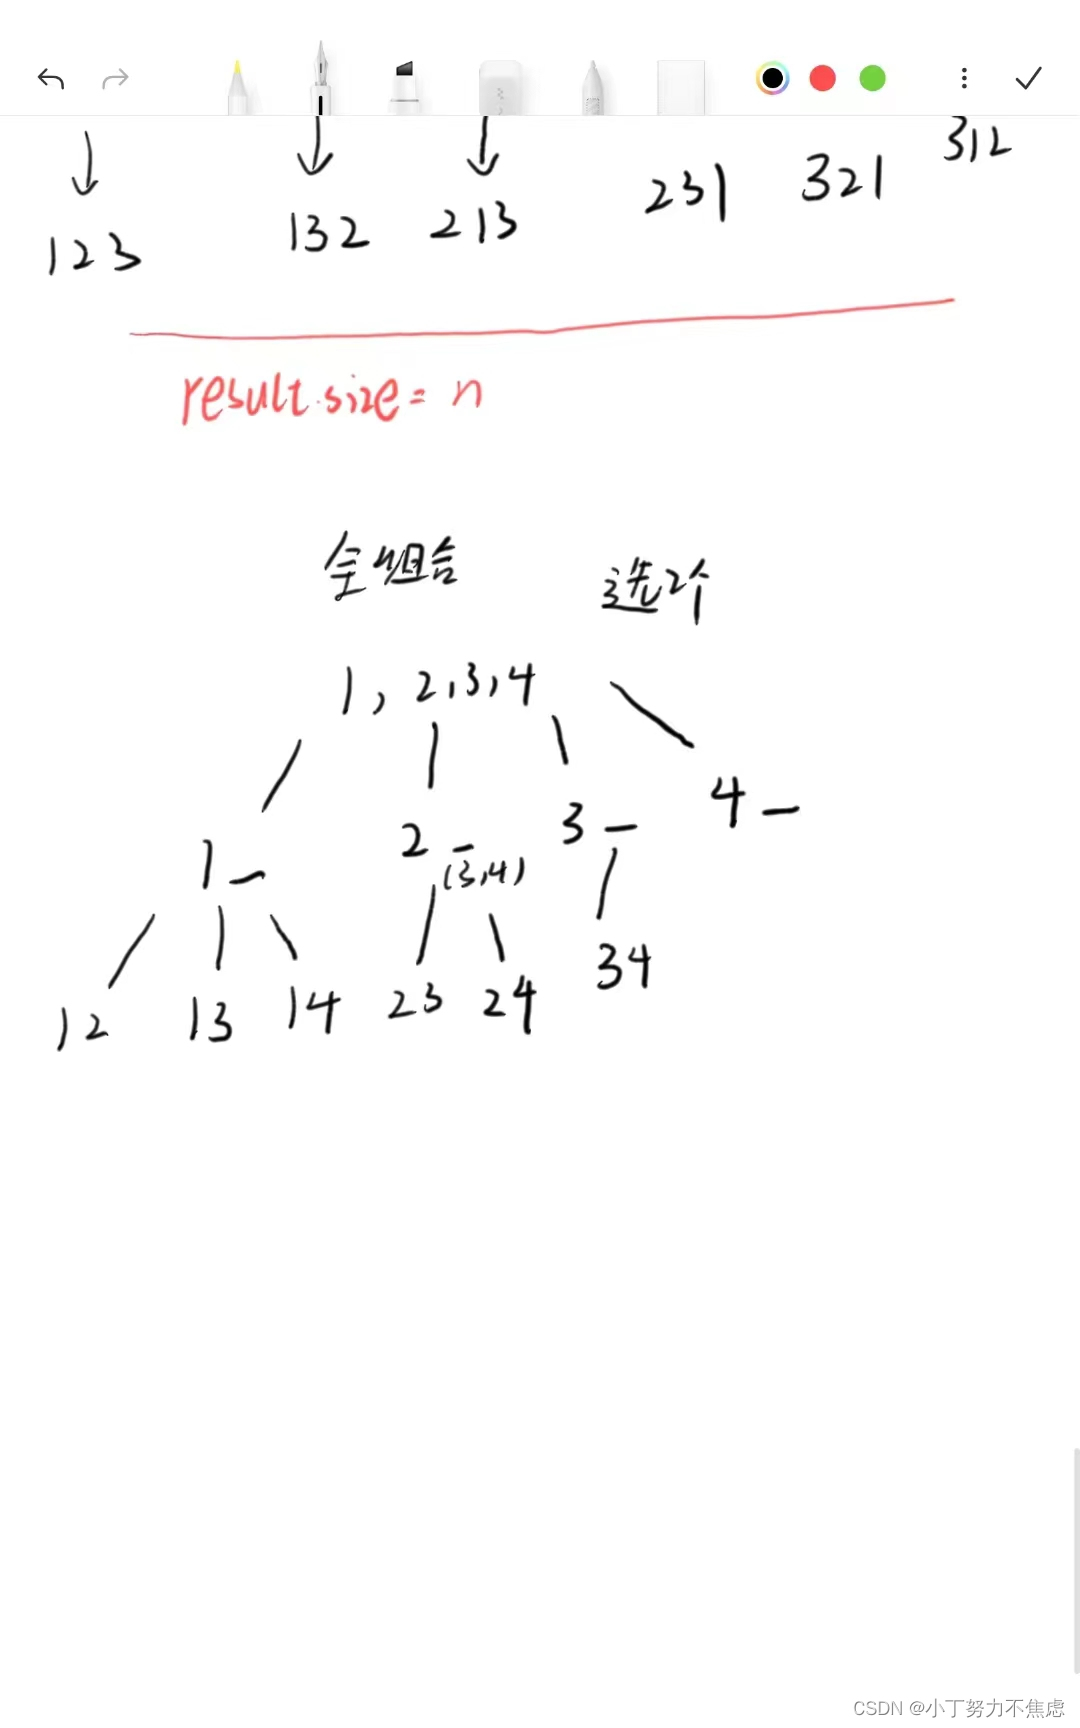 123 132 213 231 321 312
result.size = n
全组合 选2个
1, 2,3,4
1_ 2_ 3_ 4_
(3,4)
12 13 14 23 24 34
CSDN @小丁努力不焦虑